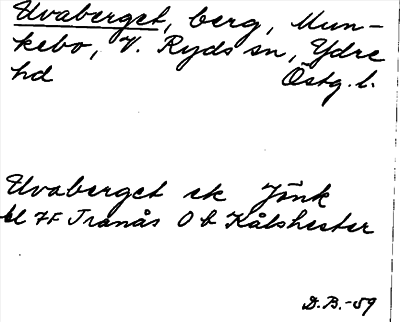 Uvaberget, berg, Mun-
kebo, V. Ryds sn, Ydre
hd Östg. l.
Uvaberget ek Jönk
bl 7F Tranås 0 b Kålshester
D.B.-59